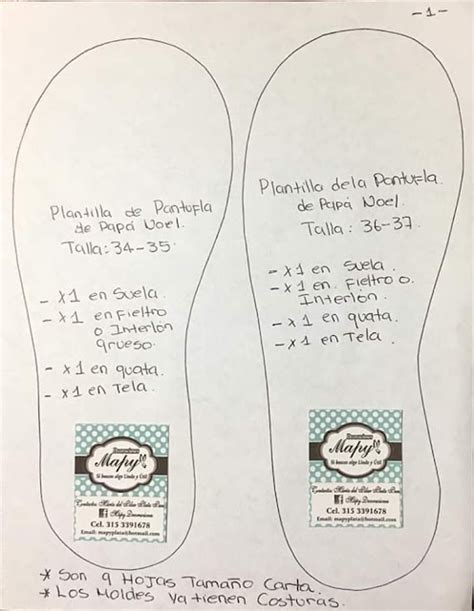 -1-
Plantilla de Pantufla
de Papá Noel.
Talla: 34-35.
- x1 en Suela.
- x1 en Fieltro
o Interlón
grueso.
- x1 en guata.
- x1 en Tela.
Decoraciones
Mapy
Si buscas algo Lindo y Útil
Contacto: María del Pilar Plata
Mapy Decoraciones
Cel. 315 3391678
Email: mapyplata@hotmail.com
Plantilla de la Pantufla.
de Papá Noel.
Talla: 36-37.
- x1 en Suela.
- x1 en Fieltro o
Interlón.
- x1 en guata.
- x1 en Tela.
Decoraciones
Mapy
Si buscas algo Lindo y Útil
Contacto: María del Pilar Plata
Mapy Decoraciones
Cel. 315 3391678
Email: mapyplata@hotmail.com
* Son 9 Hojas Tamaño Carta.
* Los Moldes ya tienen Costuras.